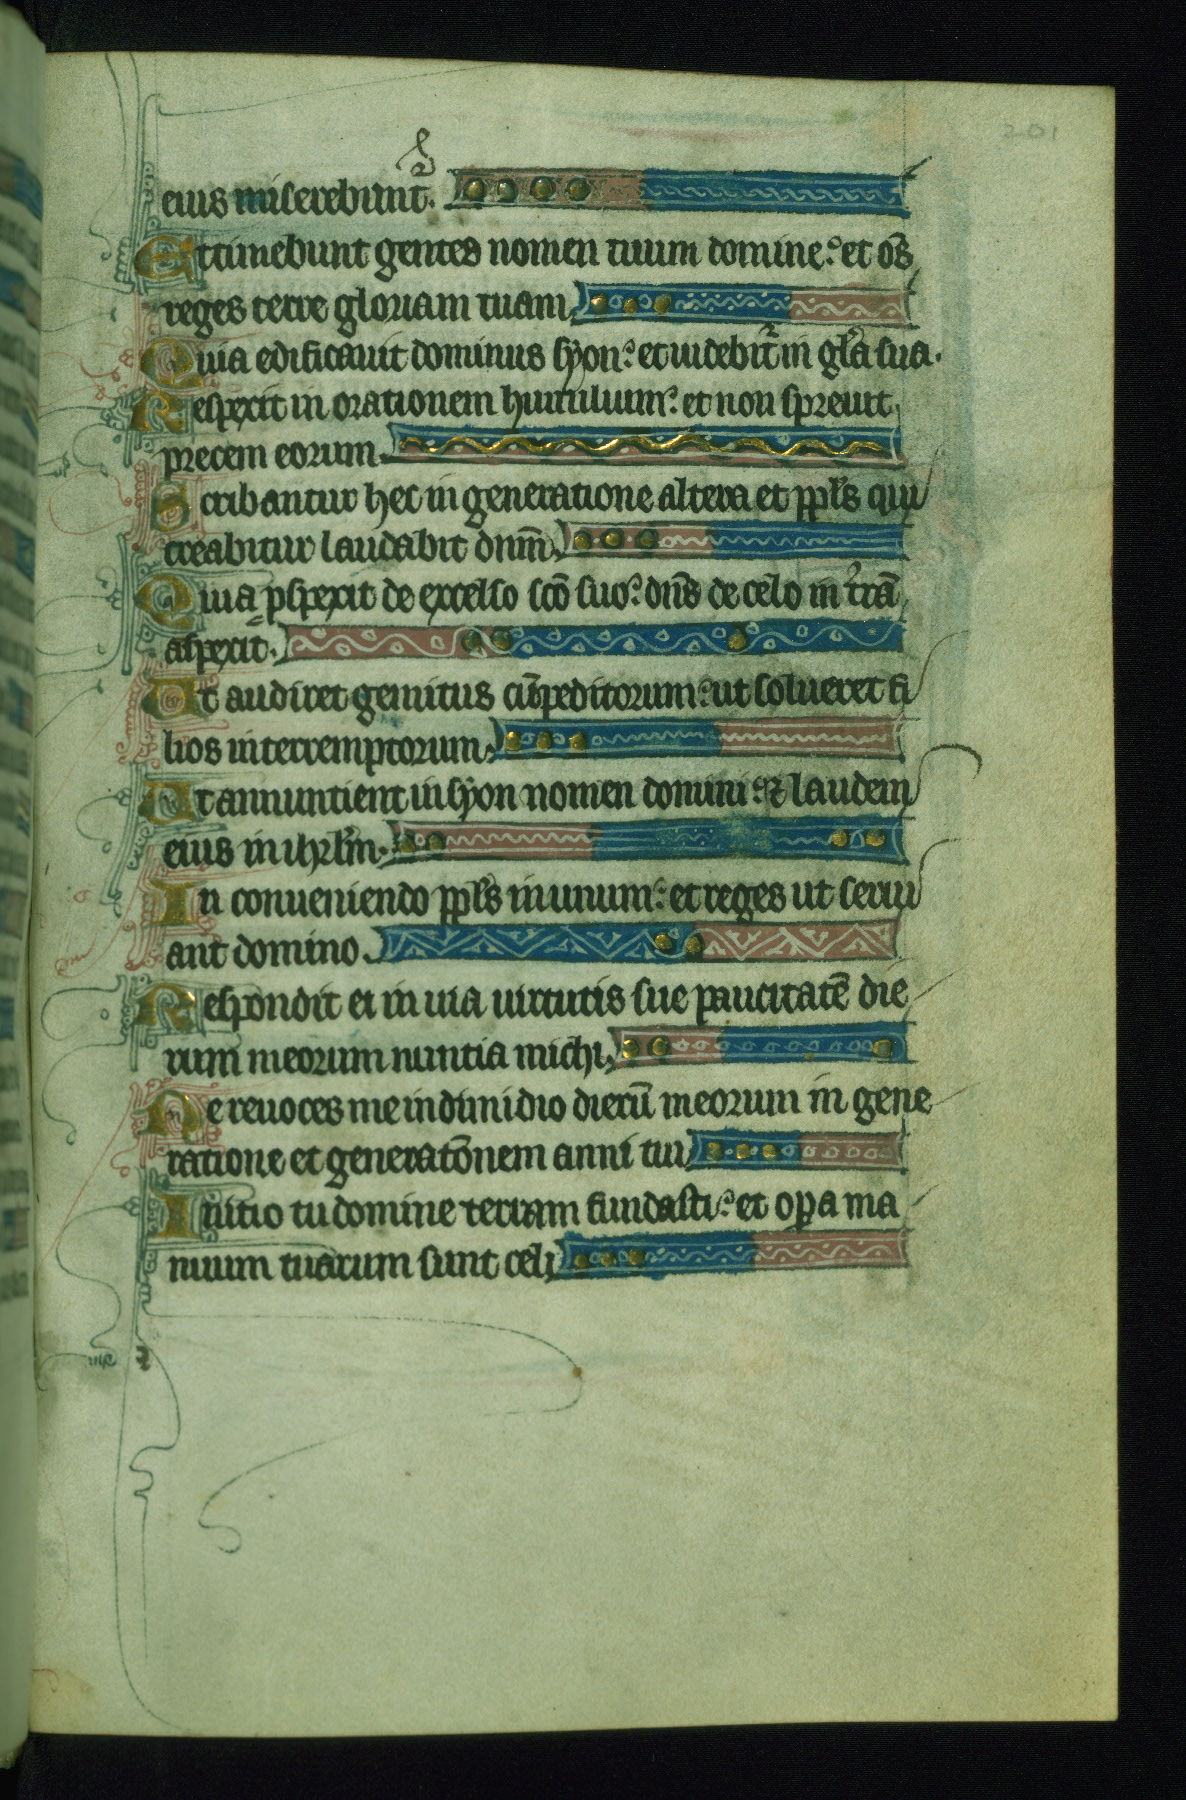 201
eius miserebunt᷑.
Et timebunt gentes nomen tuum domine: et om̄s
reges terre gloriam tuam.
Quia edificauit dominus syon: et uidebit᷑ in gl̄a sua.
Respexit in orationem humilium: et non spreuit
precem eorum.
Scribantur hec in generatione altera et ppl̄s qui
creabitur laudabit dn̄m.
Quia ꝓspexit de excelso sc̄o suo: dn̄s de celo in t̄rā
aspexit.
Ut audiret gemitus cūpeditorum: ut solueret fi
lios interremptorum.
Ut annuntient in syon nomen domini: ⁊ laudem
eius in ihrl̄m.
In conueniendo ppl̄s in unum: et reges ut serui
ant domino.
Respondit ei in uia uirtutis sue paucitatē die
rum meorum nuntia michi.
Ne reuoces me in dimidio dierū meorum in gene
ratione et generatōnem anni tui.
Initio tu domine terram fundasti: et oꝑa ma
nuum tuarum sunt celi.